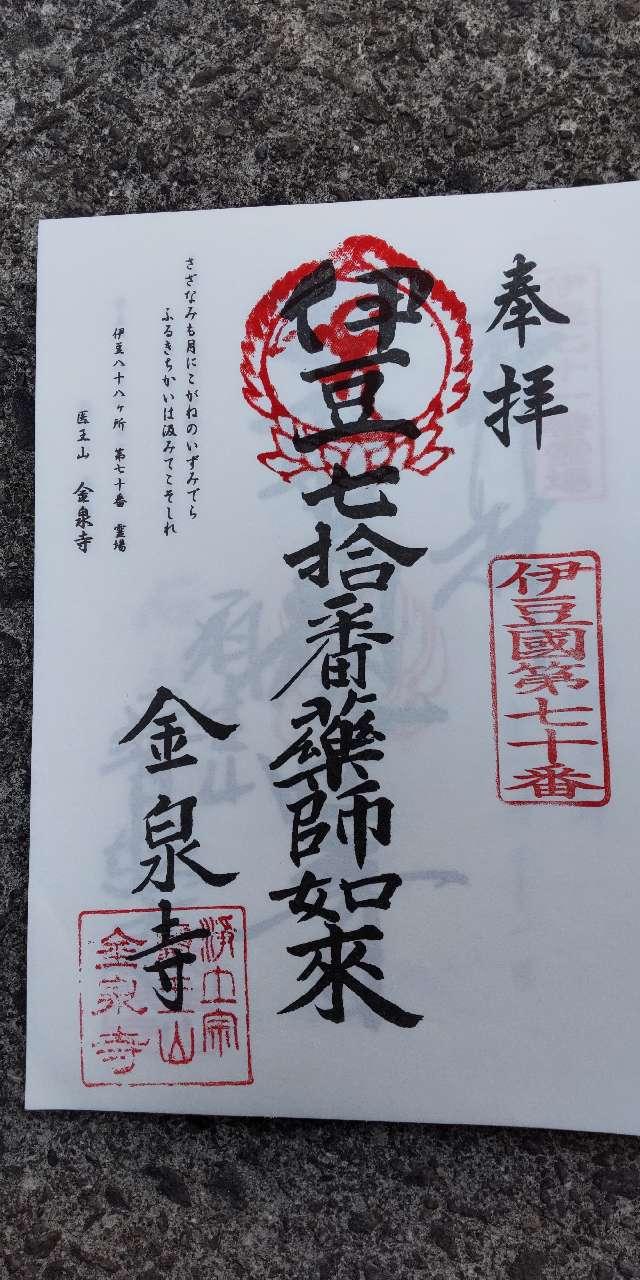 奉拝
伊豆國第七十番
伊豆七拾番藥師如來
金泉寺
さざなみも月にこがねのいずみでら
ふるきちかいは汲みてこそしれ
伊豆八十八ヶ所 第七十番 霊場
医王山 金泉寺
浄土宗
医王山
金泉寺